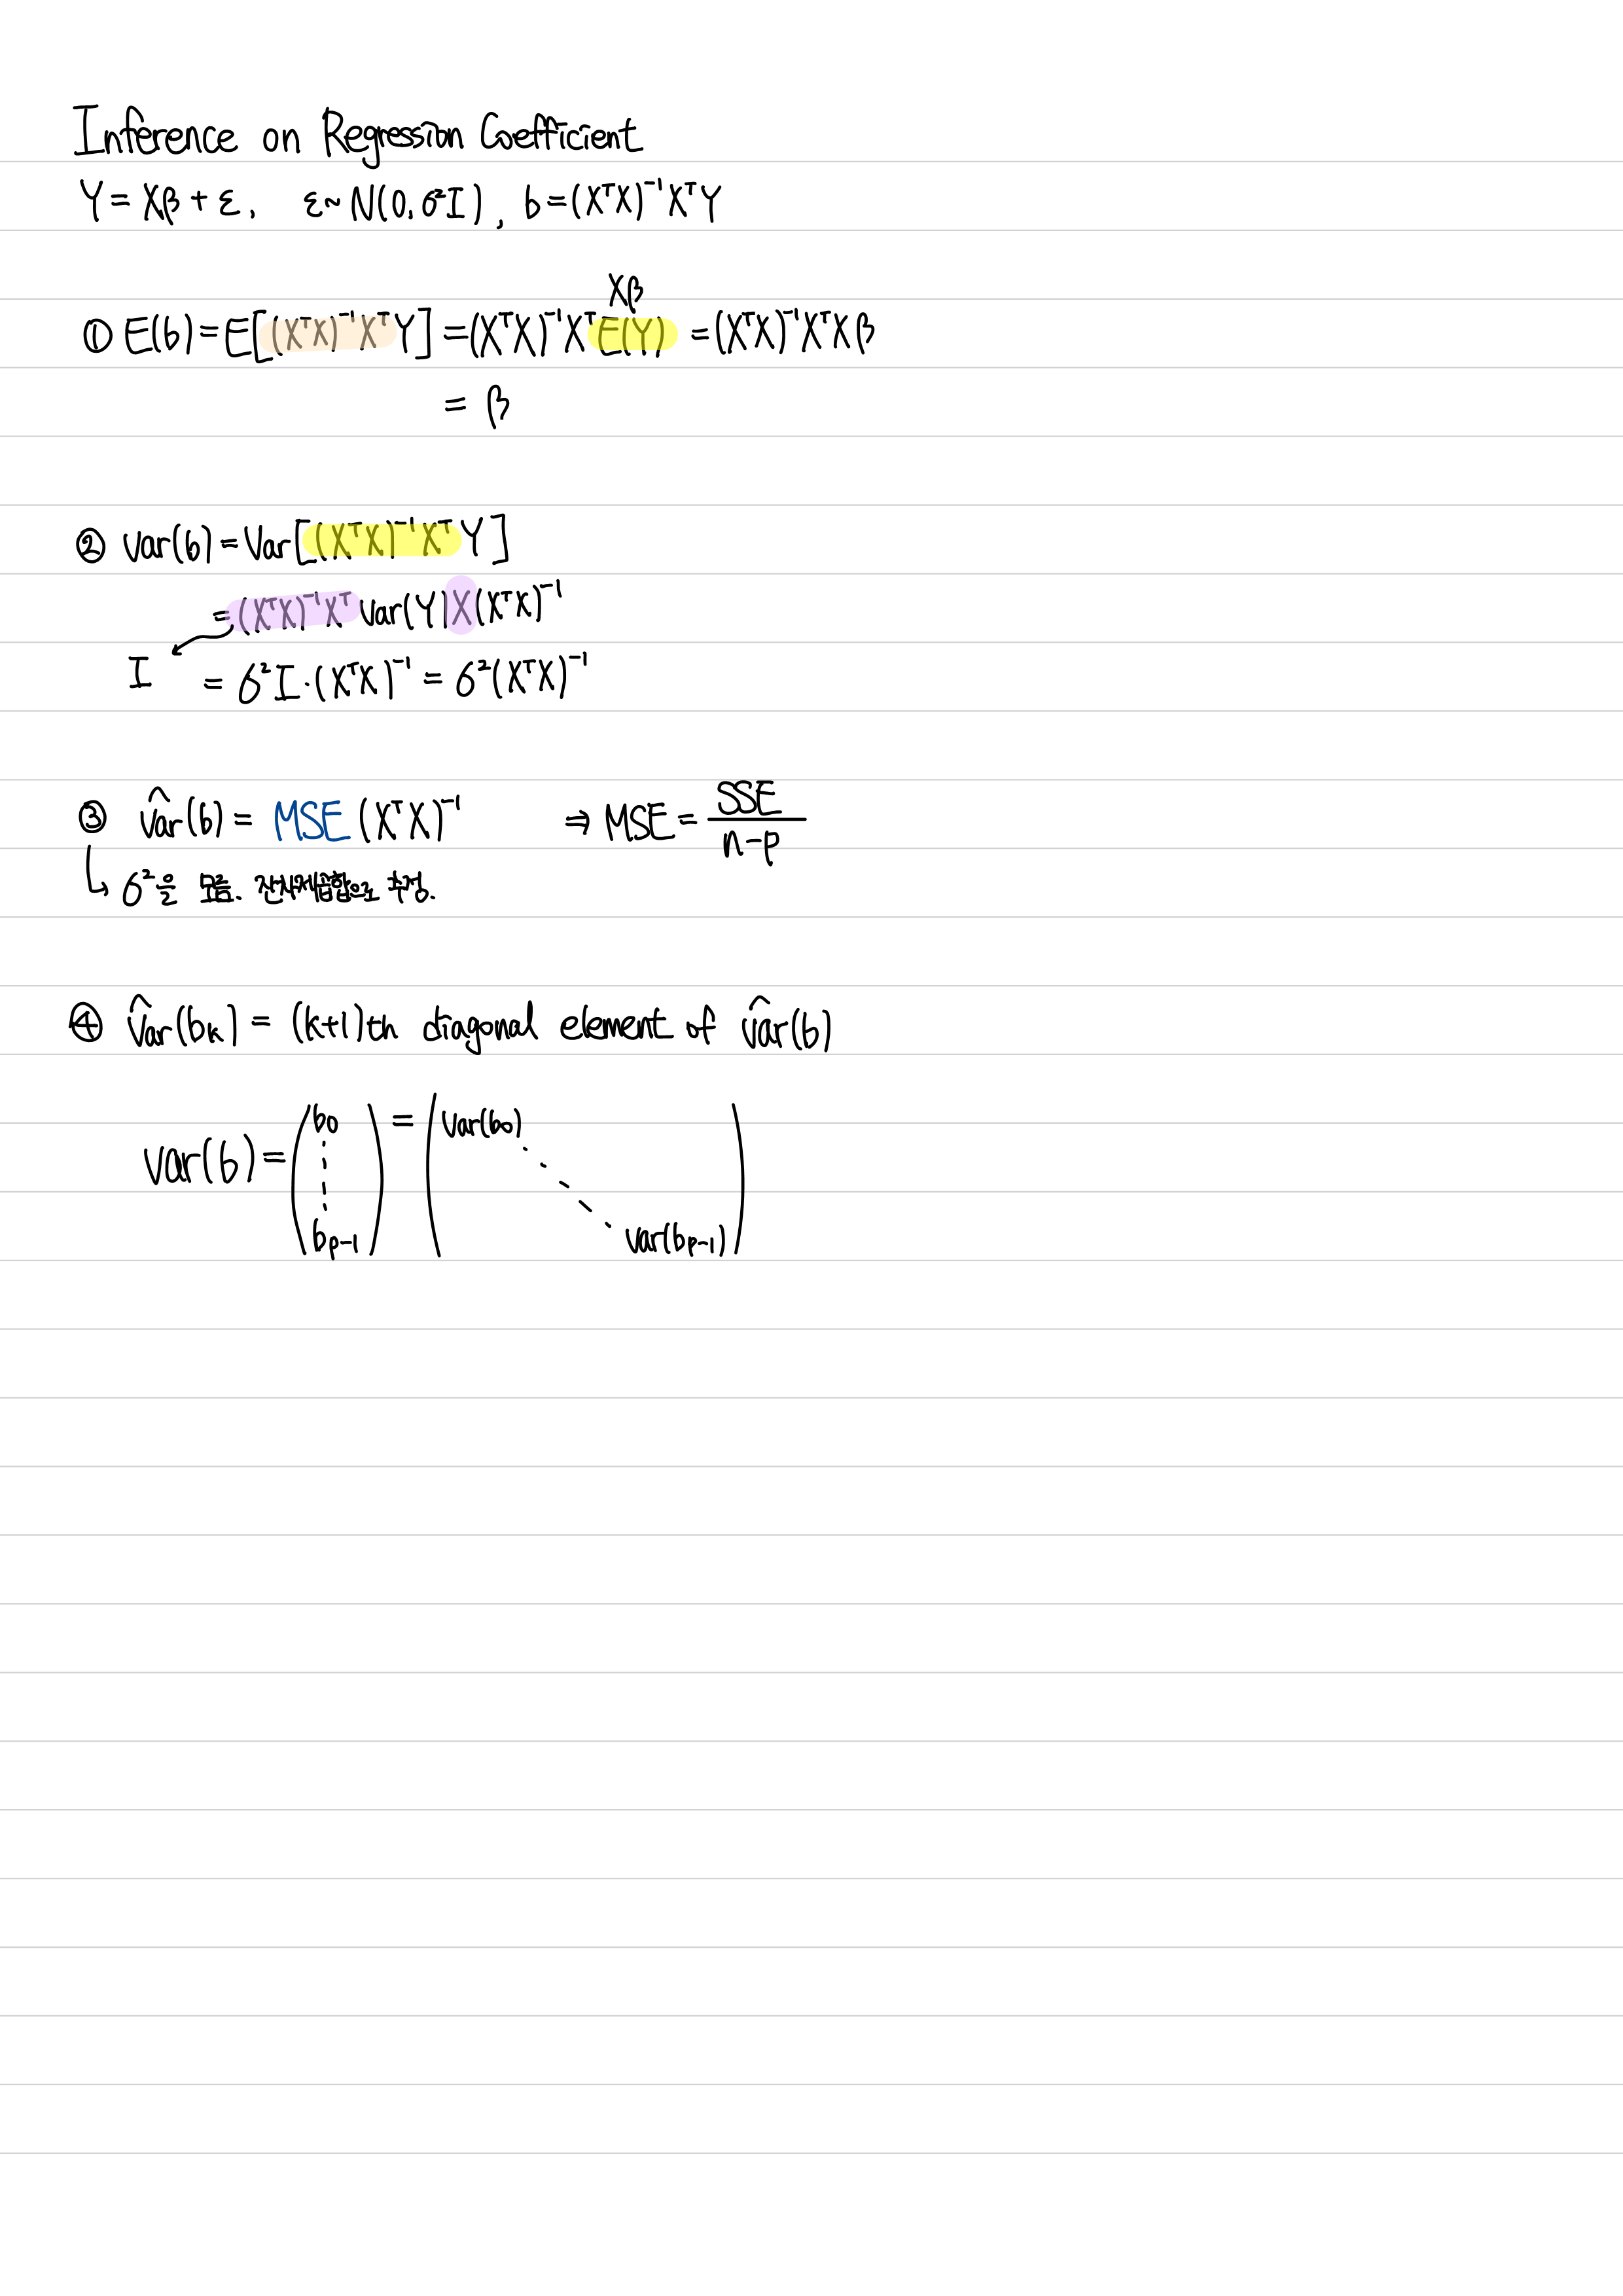 Inference on Regression Coefficient
Y = Xβ + ε, ε ~ N(0, σ²I), b = (XᵀX)⁻¹XᵀY
Xβ
① E(b) = E[(XᵀX)⁻¹XᵀY] = (XᵀX)⁻¹XᵀE(Y) = (XᵀX)⁻¹XᵀXβ
= β
② Var(b) = Var[(XᵀX)⁻¹XᵀY]
= (XᵀX)⁻¹Xᵀ Var(Y) X(XᵀX)⁻¹
I = σ²I·(XᵀX)⁻¹ = σ²(XᵀX)⁻¹
③ V̂ar(b) = MSE(XᵀX)⁻¹ ⇒ MSE = SSE / n-p
↳ σ²을 모름. 잔차제곱합으로 추정.
④ V̂ar(bₖ) = (k+1)th diagonal element of V̂ar(b)
Var(b) = (b₀ ⋮ bₚ₋₁) = (Var(b₀) ⋱ Var(bₚ₋₁))